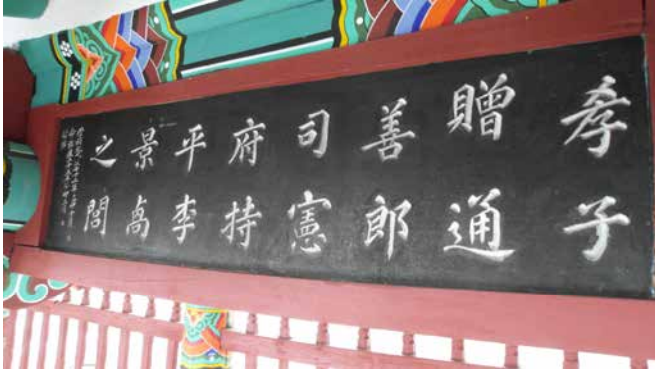 孝子
贈通
善郎
司憲
府持
平李
景高
之閭